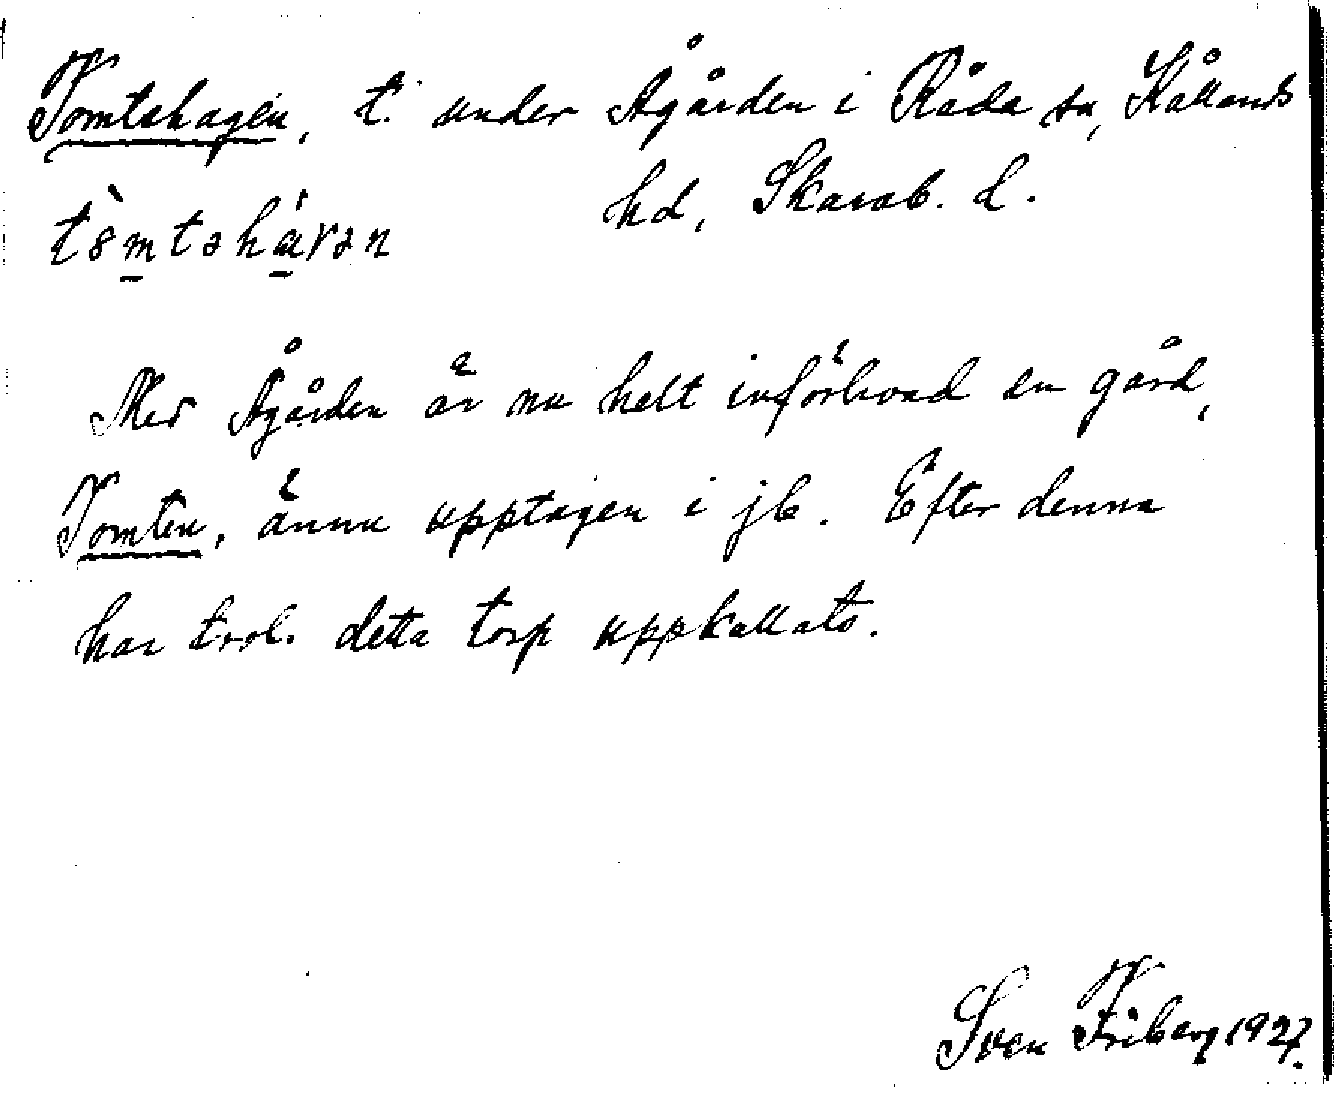 Tomtehagen, t. under Ågården i Råda sn, Kållands
hd, Skarab. l.
Med Ågården är nu helt införlivad en gård,
Tomten, ännu upptagen i jb. Efter denna
har trol. detta torp uppkallats.
Sven Friberg 1927.